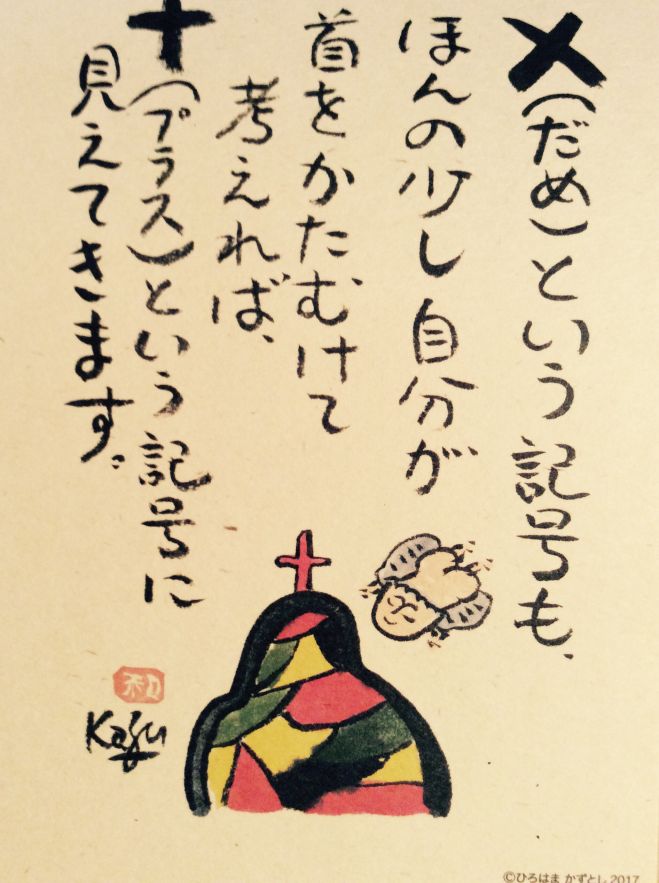 ×(だめ)という記号も、
ほんの少し自分が
首をかたむけて
考えれば、
+(プラス)という記号に
見えてきます。
和
Kazu
©ひろはま かずとし 2017